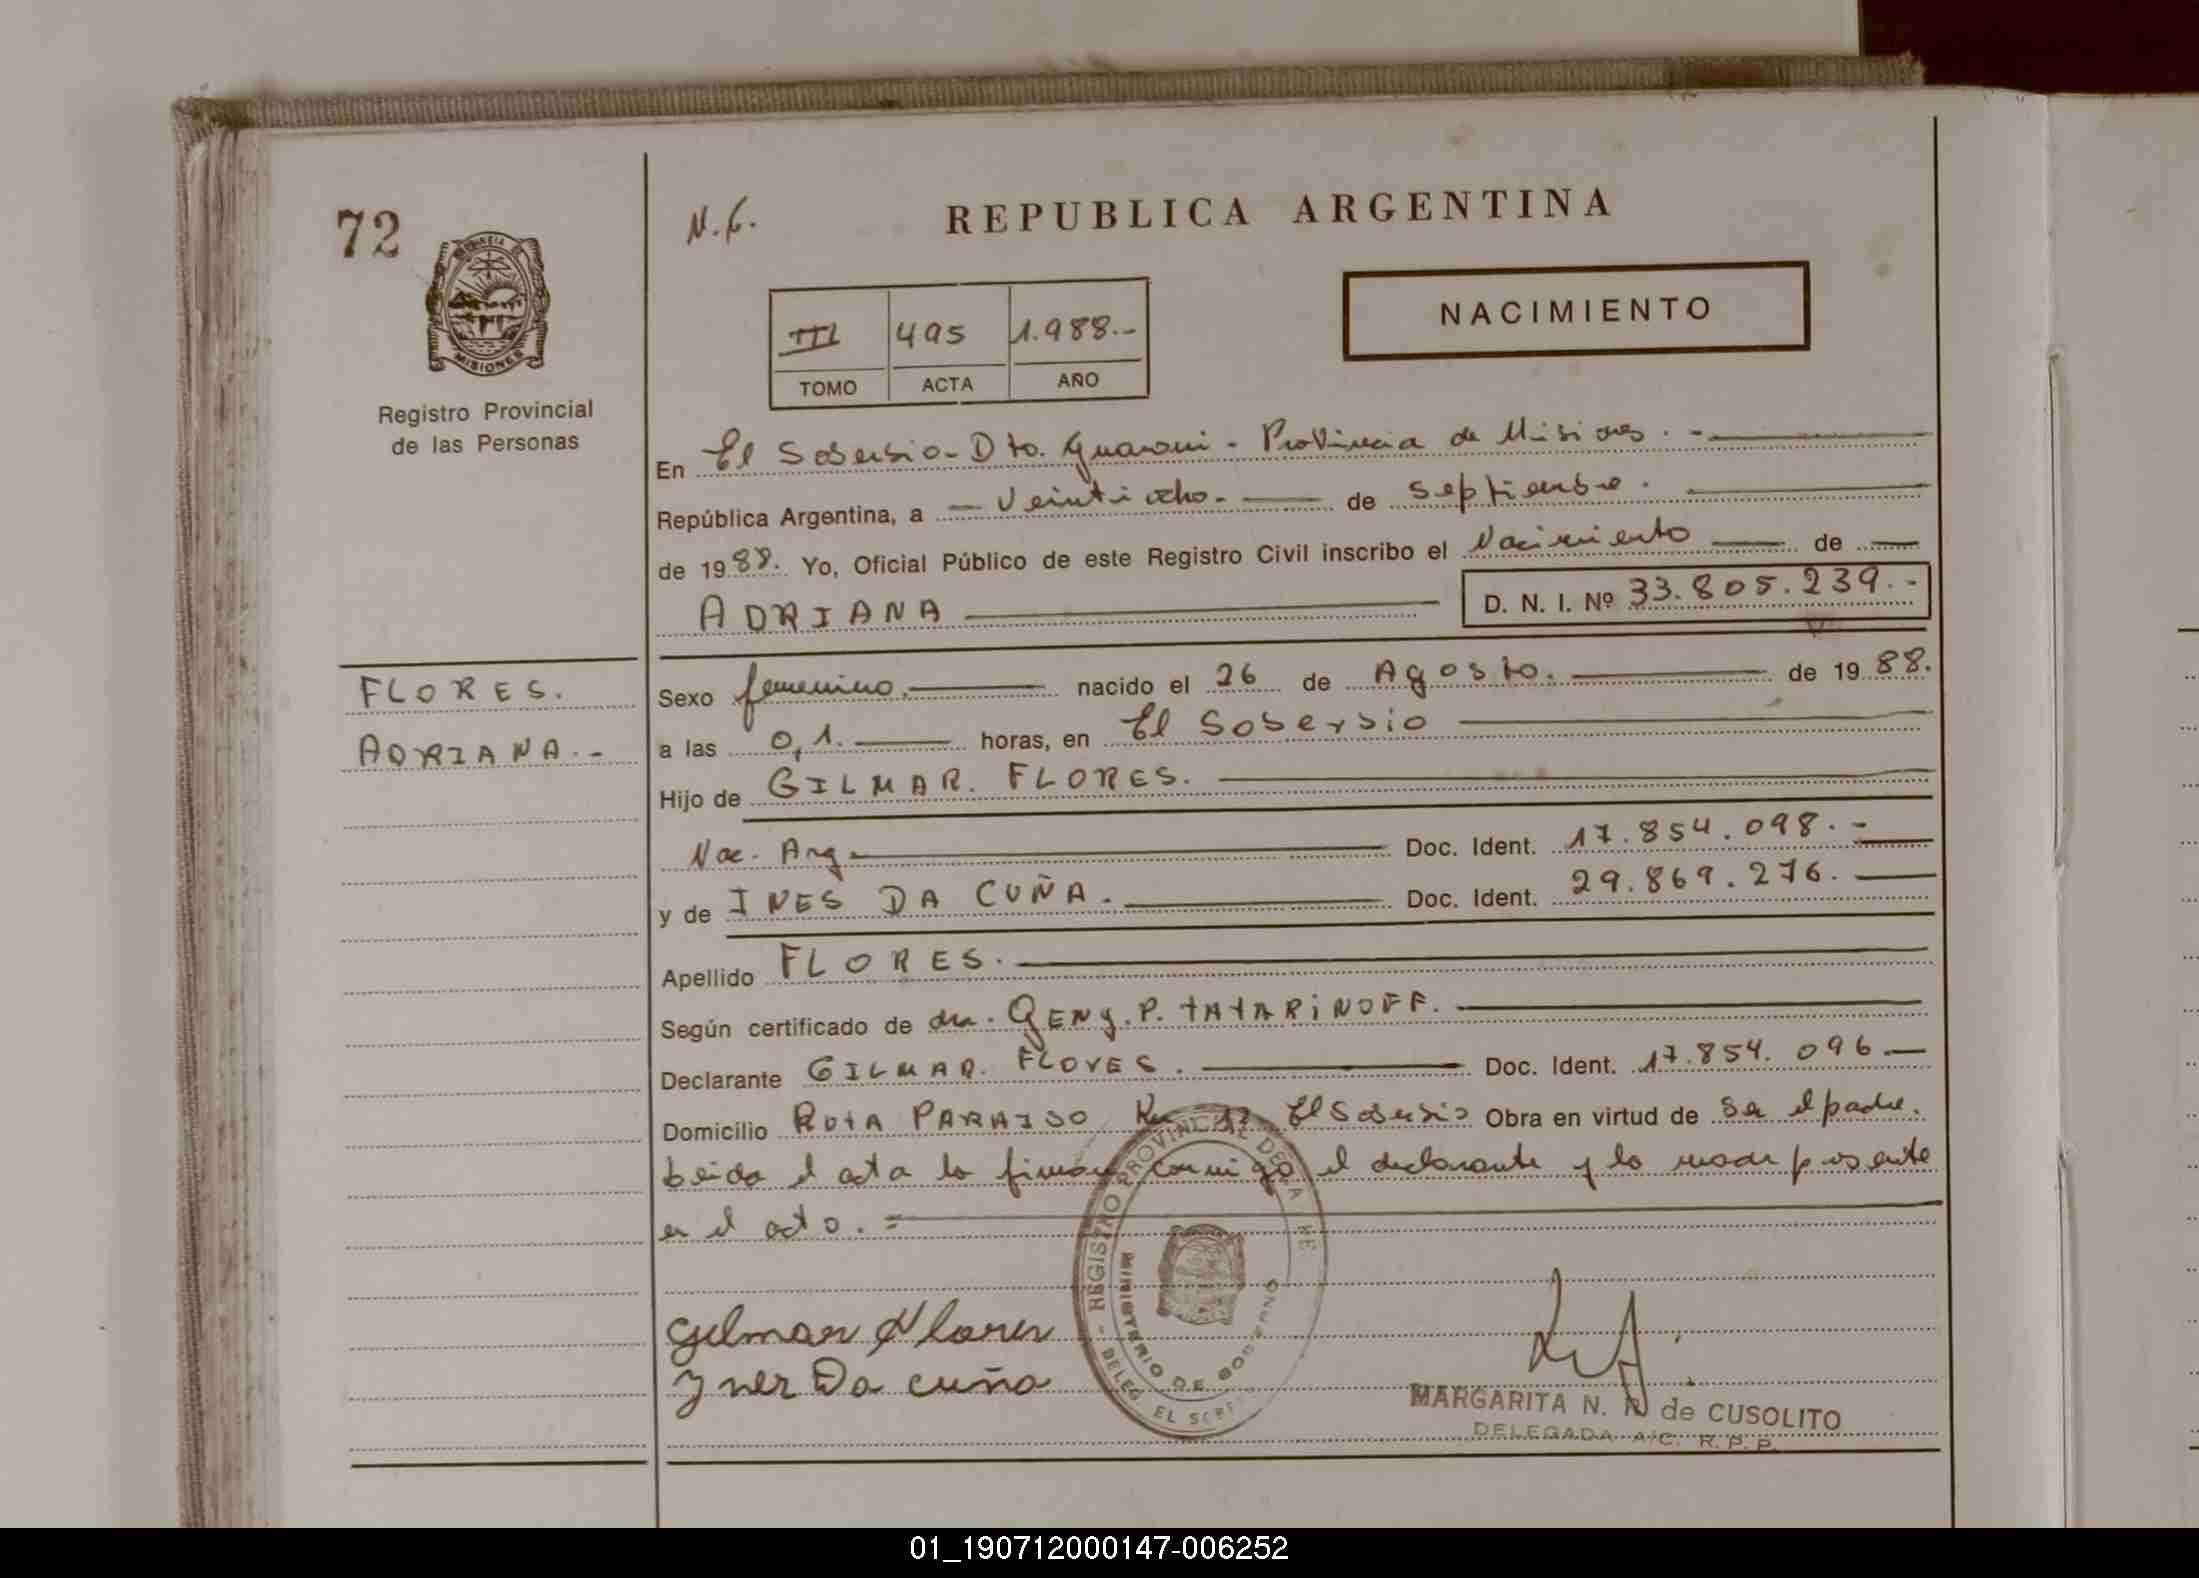 72
N.G.
REPUBLICA ARGENTINA
PROVINCIA DE MISIONES
Registro Provincial
de las Personas
III 495 1.988.-
TOMO ACTA AÑO
NACIMIENTO
En El Soberbio - Dto. Guarani - Provincia de Misiones. -
República Argentina, a - Veintiocho. - de Septiembre.
de 1988. Yo, Oficial Público de este Registro Civil inscribo el Nacimiento de
ADRIANA D. N. I. Nº 33.805.239.-
FLORES.
ADRIANA.-
Sexo femenino. nacido el 26 de Agosto. de 1988.
a las 0,1. horas, en El Soberbio
Hijo de GILMAR. FLORES.
Nac. Arg Doc. Ident. 17.854.098.-
y de INES DA CUÑA. Doc. Ident. 29.869.276.
Apellido FLORES.
Según certificado de dra. GENY. P. TATARINOFF.
Declarante GILMAR. FLORES. Doc. Ident. 17.854.096
Domicilio RUTA PARAISO Km 12 El Soberbio Obra en virtud de Ser el padre.
Leida el acta la firman conmigo el declarante y la madre presente
en el acto. =
Gilmar Flores
Ynes Da cuña
REGISTRO PROVINCIAL DE LA PE
DELEG EL SOBE
MINISTERIO DE GOBIERNO
MARGARITA N. R de CUSOLITO
DELEGADA A/C. R. P. P.
01_190712000147-006252